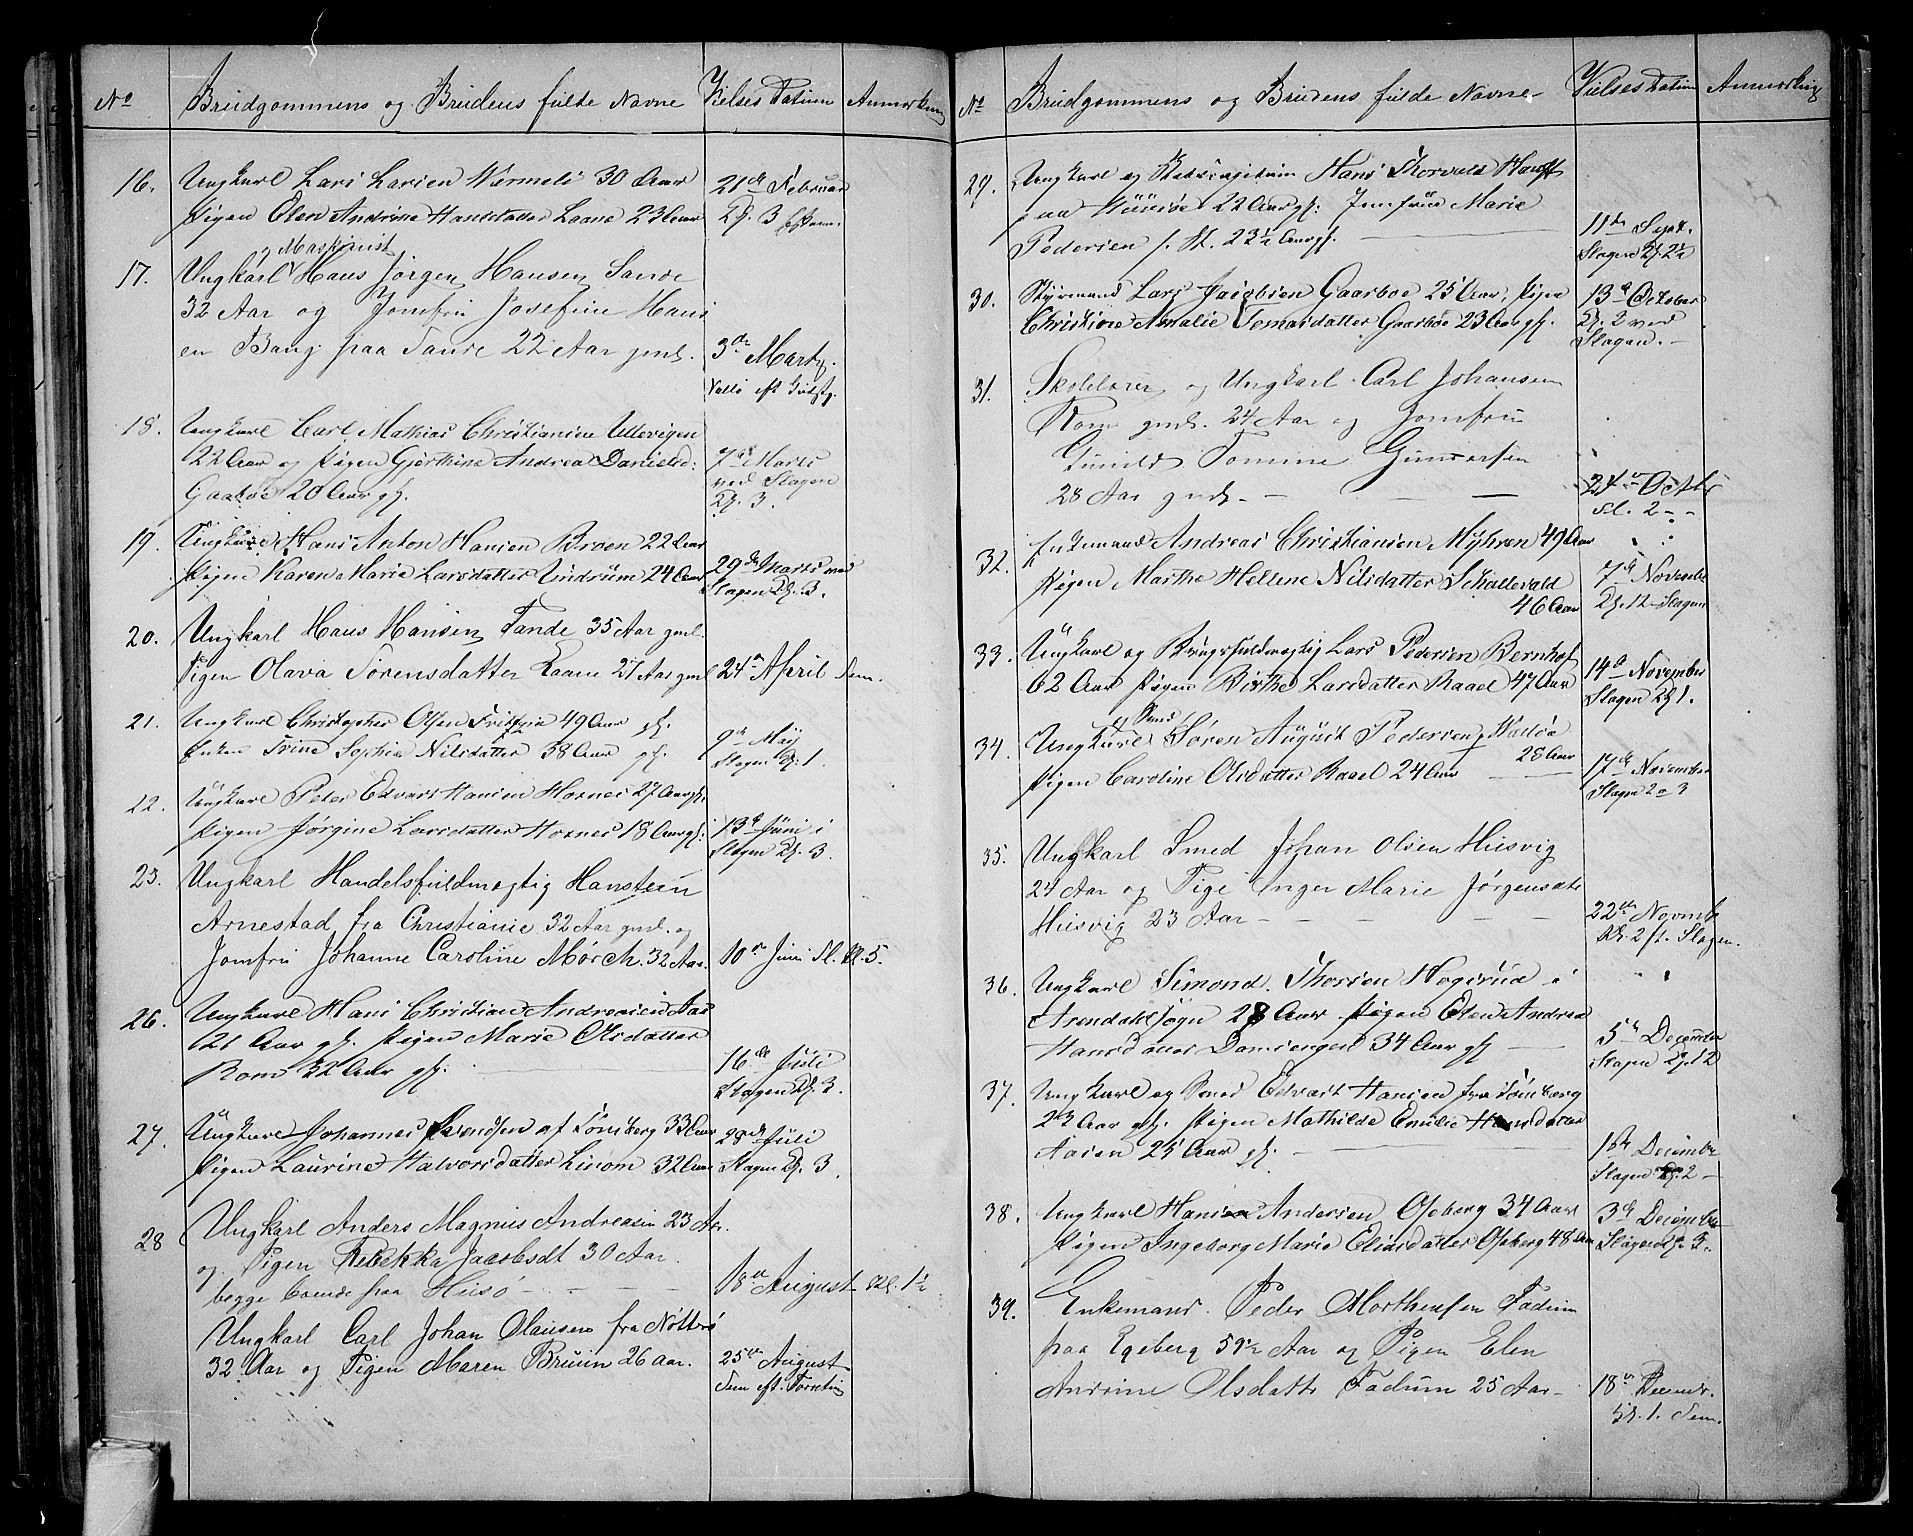 No
Brudgommens og Brudens fulde Navne
Vielses Datum
Anmerkning
16.
Ungkarl Lars Larsen Wermeli 30 Aar
Pigen Elen Andrine Hansdatter Laane 23 Aar
21de Februar
Kl. 3
og Maskinist
17.
Ungkarl Hans Jörgen Hansen Sande
32 Aar og Jomfru Josefine Hans
en Bang paa Sande 22 Aar gml.
3die Marts
Vallö eft
18.
Ungkarl Carl Mathias Christiansen Ullevigen
22 Aar og Pigen Gjerthine Andrea Danielsd:
Gaarboe 20 Aar gl.
7de Marts
ved Slagen
Kl. 3.
19.
Ungkarl Hans Anton Hansen Broen 22 Aar
Pigen Karen Marie Larsdatter Undrum 24 Aar
29de Marts ved
Slagen Kl. 3.
20.
Ungkarl Hans Hansen Tande 35 Aar gml.
Pigen Olava Sörensdatter Laane 27 Aar gml
24de April Sem.
21.
Ungkarl Christopher Olsen 49 Aar gl.
Enken Trine Sophia Nilsdatter 38 Aar gl.
9de Maj
Slagen Kl. 1.
22.
Ungkarl Peter Edvart Hansen Hornes 27 Aar gl.
Pigen Jørgine Larsdatter Hornes 18 Aar gl.
13de Juni i
Slagen Kl. 3.
23.
Ungkarl Handelsfuldmegtig Hansteen
Arnestad fra Christianie 32 Aar gml. og
Jomfru Johanne Caroline Mørch. 32 Aar.
10de Juni Sl. Kl. 5.
26.
Ungkarl Hans Christian Andreasen Aas
21 Aar gl. Pigen Marie Olsdatter
Rom 32 Aar gl.
16de Juli
Slagen Kl. 3.
27.
Ungkarl Johannes Svendsen af Tönsberg 33 Aar
Pigen Laurine Halvorsdatter Linom 32 Aar
28de Juli
Slagen Kl. 3.
28
Ungkarl Anders Magnus Andreasen 23 Aar.
og Pigen Rebekka Jacobsdt 30 Aar.
begge boende paa Husö
18de August Kl. 1½
Ungkarl Carl Johan Olausen fra Nötterö
32 Aar og Pigen Maren Bruun 26 Aar.
25de August
Sem eft.
No
Brudgommens og Brudens fulde Navne
Vielses Datum
Anmerkning
29.
Ungkarl og Hans Thorvald
paa Huusöe 22 Aar gl: Jomfrue Marie
Pedersen s. St. 23½ Aar gl.
11de Sept.
Slagen Kl. 2½
30.
Styrmand Lars Jacobsen Gaarboe 25 Aar, Pigen
Christine Amalie Tomasdatter Gaarboe 23 Aar gl.
13de October
Kl. 2 ved
Slagen.
31.
Skolelærer og Ungkarl Carl Johansen
Rom gml. 24 Aar og Jomfru
Gunild Tomine Gundersen
28 Aar gml.
24de Octbr
Sl. 2
32.
Enkemand Andreas Christiansen Myhren 49 Aar
Pigen Marthe Hellene Nilsdatter Schallevald
46 Aar
7de Novembe
Kl. 12 Slagen
33.
Ungkarl og Brugsfuldmegtig Lars Pedersen Bernhof
62 Aar Pigen Birthe Larsdatter Raael 47 Aar
14de November
Slagen Kl 1.
og Smed
34.
Ungkarl Søren August Pedersen Valløe
28 Aar
Pigen Caroline Olsdatter Raael 24 Aar
17de November
Slagen 2 a 3
35.
Ungkarl Smed Johan Olsen Husvig
24 Aar og Pige Inger Marie Jørgensdt
Husvig 23 Aar
22de Novmb
Kl. 2 f. Slagen.
36.
Ungkarl Simond Thorsen Hogsrud i
Arendahl Sogn 28 Aar Pigen Elen Andrea
Hansdatter Damsengen 34 Aar gl
5te December
Slagen Kl. 12
37.
Ungkarl og Smed Edvart Hansen fra Tönsberg
23 Aar gl. Pigen Mathilde Emilie Hansdatter
Aasen 25 Aar gl.
1ste Decembe
Slagen Kl. 2
38.
Ungkarl Hans Andersen Oseberg 34 Aar
Pigen Ingeborg Marie Eliasdatter Oseberg 48 Aar
3de Decembe
Slagen
39.
Enkemand. Peder Morthensen Fadum
paa Egeberg 59½ Aar og Pigen Elen
Andrine Olsdatt Fadum 25 Aar
18de Decembr.
Kl. 1. Sem.